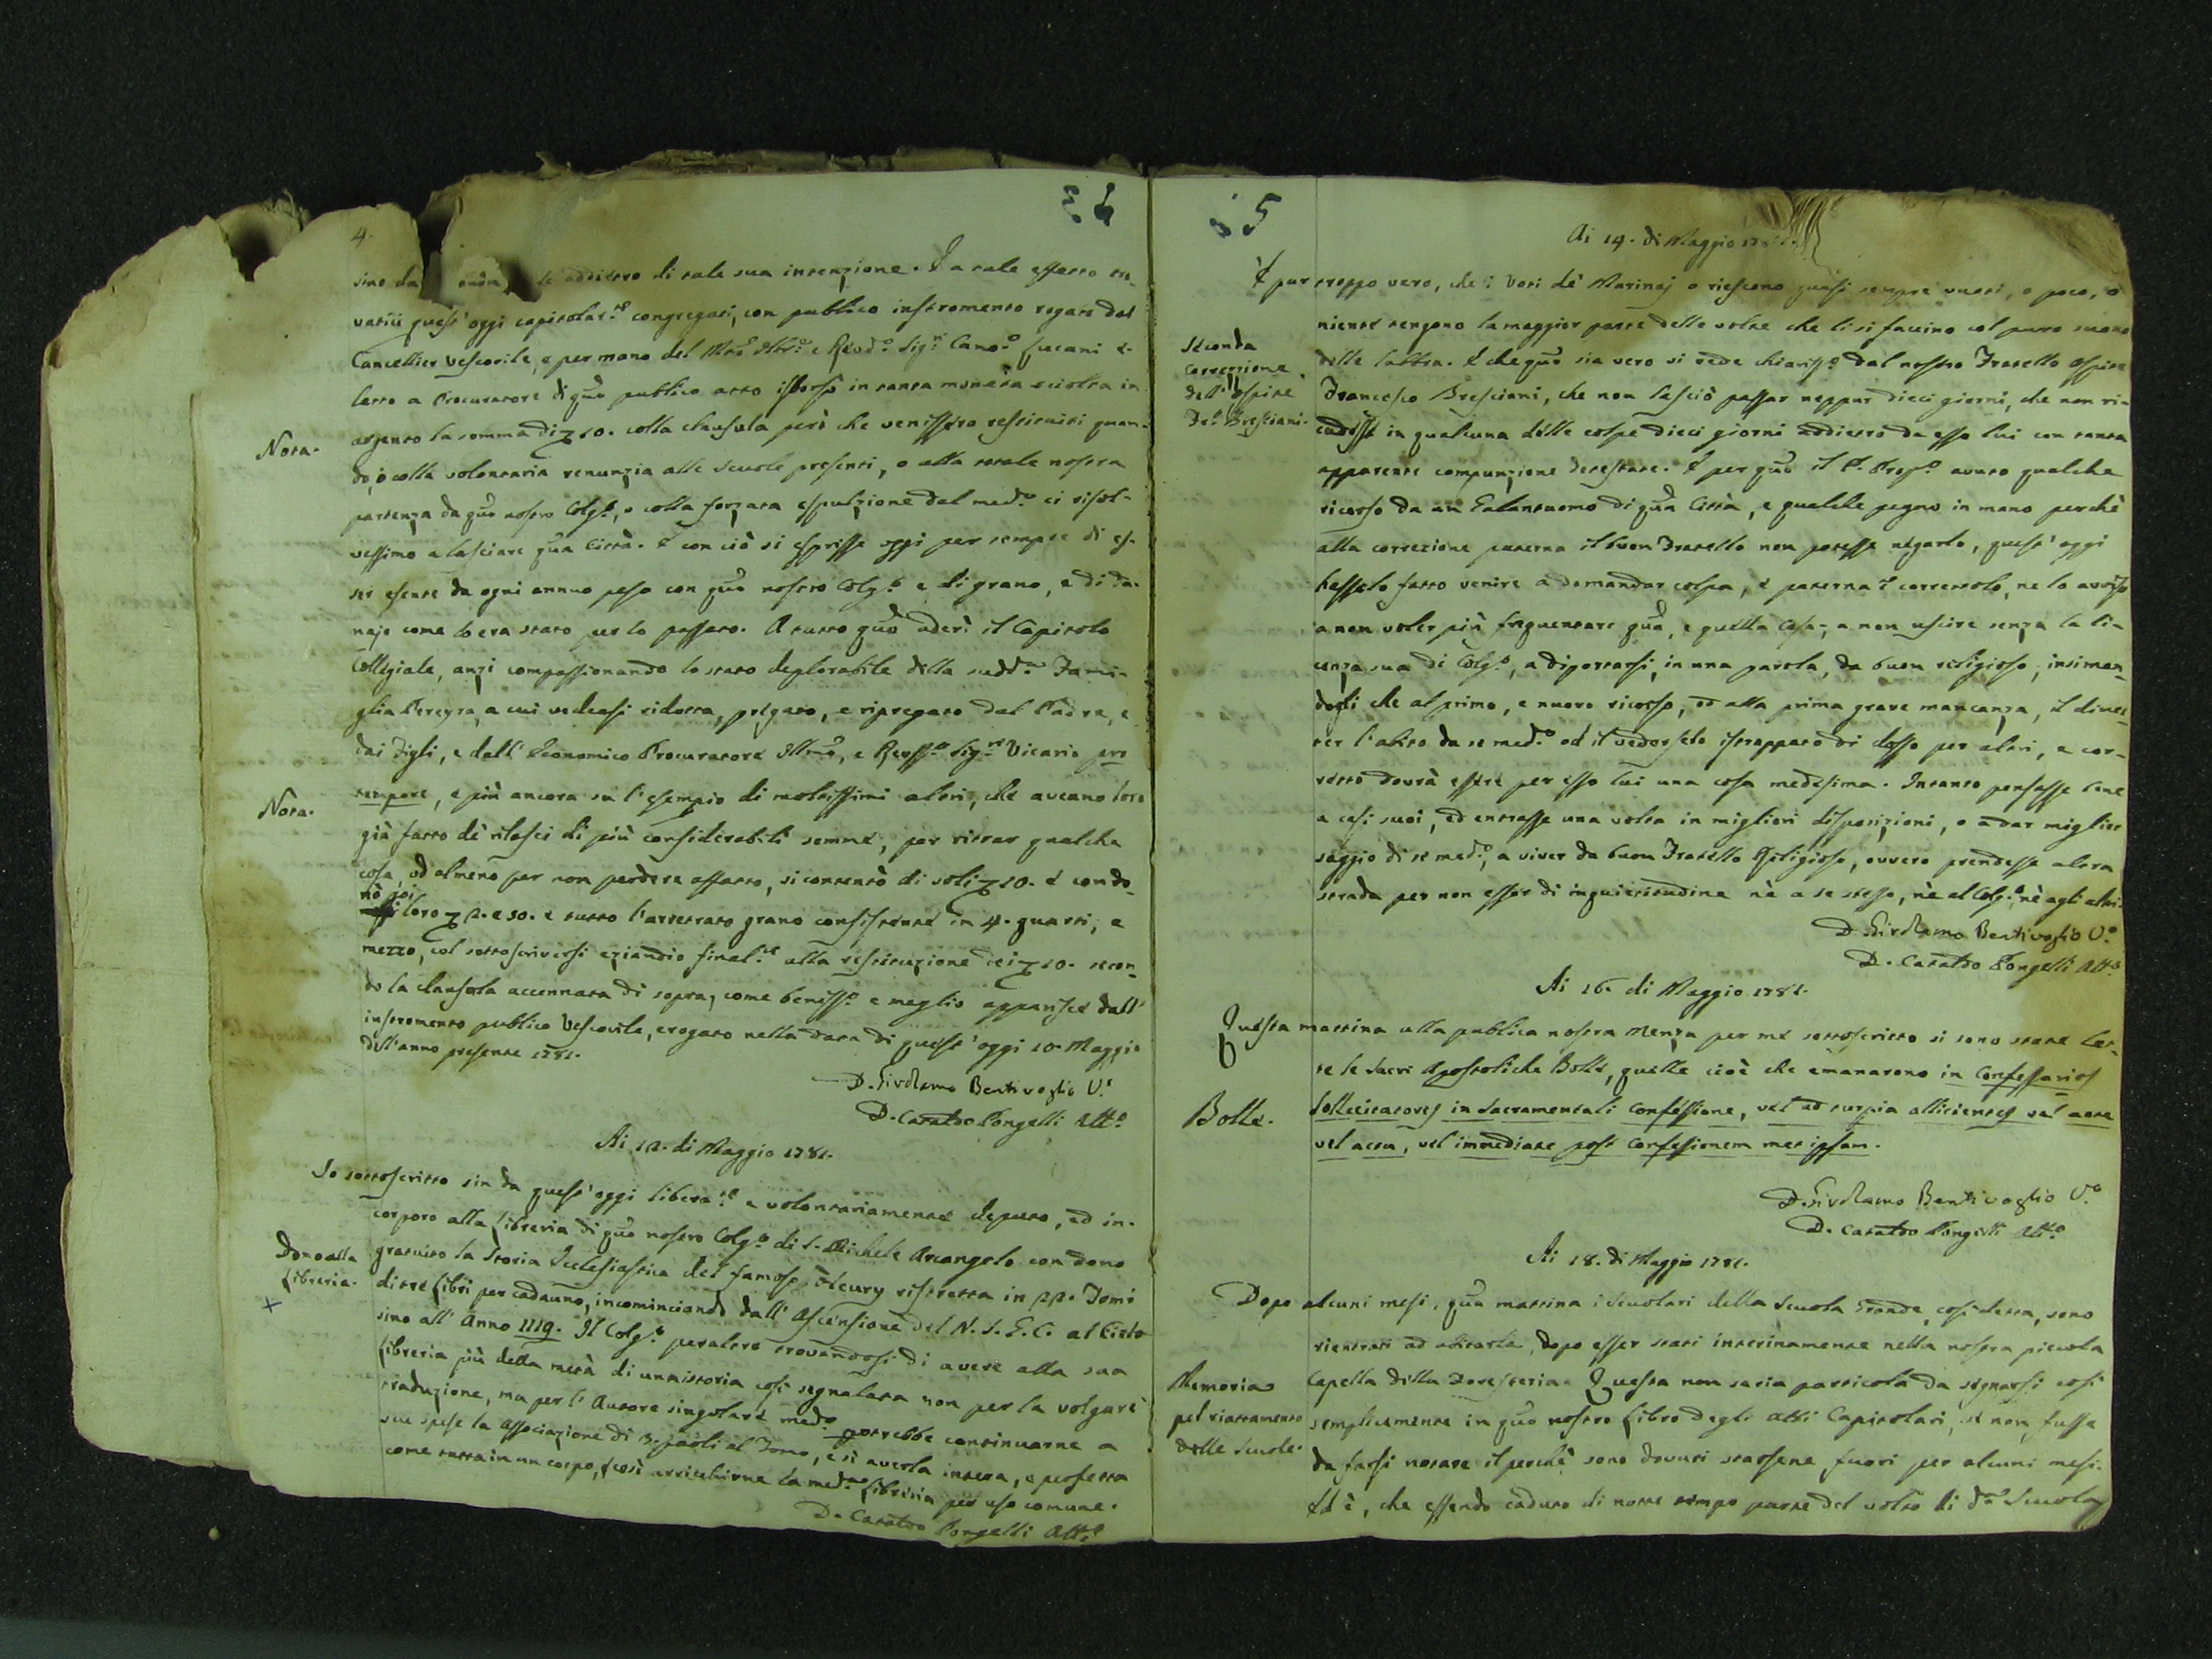 4.
34
sino da
addietro di tale sua intenzione. E a tale effetto
quest'oggi capitolar.te congregati, con publico instromento rogato dal
Cancellier Vescovile, e per mano del
e Revd.o Sig.r Cano.o Lucani
letto a Procuratore di qũo publico atto isborsò in tanta moneta sciolta in
Nota.
argento la somma di 10. colla clausula però che venissero restituiti quan-
do, o colla volontaria renunzia alle Scuole presenti, o alla totale nostra
partenza da qũo nostro Colg.o, o colla forzata espulzione dal med.o ci risol-
vessimo a lasciare qũa Città. E con ciò si espresse oggi per sempre di es-
ser esente da ogni annuo peso con qũo nostro Colg.o e di grano, e di da-
najo come lo era stato per lo passato. A tutto qũo aderì il Capitolo
Collegiale, anzi compassionando lo stato deplorabile della sudd.a Fami-
glia Pereyra, a cui vedeasi ridotta, pregato, e ripregato dal Padre, e
dai Figli, e dall'Economico Procuratore Illmo, e Revss.o Sig.r Vicario pro
Nota.
tempore, e più ancora su l'esempio di moltissimi altri, che aveano loro
già fatto de' rilasci di più considerabili somme, per ritrar qualche
cosa, od almeno per non perdere affatto, si contentò di soli 10. e condo-
nò poi
loro 2. e 50. e tutto l'arretrato grano consistente in 4. quarti, e
mezzo, col sottoscriversi eziandio final.te alla restituzione dei 10. secon-
do la clausola accennata di sopra, come beniss.o e meglio apparisce dall'
instromento publico Vescovile, erogato nella data di quest'oggi 10. Maggio
dell'anno presente 1781.
D. Girolamo Bentivoglio V.o
D. Cataldo Pongelli Att.o
Ai 12. di Maggio 1781.
Io sottoscritto sin da quest'oggi libera.te e volontariamente deputo, ed in-
corporo alla Libreria di qũo nostro Colg.o di S. Michele Arcangelo con dono
Dono alla
Libreria.
+
gratuito la Storia Ecclesiastica del famoso Fleury ristretta in 22. Tomi
di tre Libri per cadauno, incominciando dall'Ascensione del N. S. G. C. al Cielo
sino all'Anno 1119. Il Colg.o peraltro trovandosi di avere alla sua
Libreria più della metà di una istoria così segnalata non per la volgare
traduzione, ma per l'Autore singolare med.o potrebbe continuarne a
sue spese la associazione di 3. paoli al Tomo, e sì averla intera, e perfetta
come tutta in un corpo, e così arricchirne la med.a Libreria per uso comune.
D. Cataldo Pongelli Att.o
5
Ai 14. di Maggio 1781.
È pur troppo vero, che i Voti de' Marinaj o riescono quasi sempre vuoti, o poco, o
niente tengono la maggior parte delle volte che li si faccino col puro suono
Seconda
Correzione
dell'Ospite
Fr. Bresciani.
delle labbra. E che qũo sia vero si vede chiariss.o dal nostro Fratello Ospite
Francesco Bresciani, che non lasciò passar neppur dieci giorni, che non ri-
cadesse in qualcuna delle colpe dieci giorni addietro da esso lui con tanta
apparente compunzione detestate. E per qũo il P. Prop.o avuto qualche
ricorso da un Galantuomo di qũa Città, e qualche pegno in mano perchè
alla correzione paterna il buon Fratello non potesse negarlo, quest'oggi
fatto venire a domandar colpa, e paterna.te correttolo, ne lo avvisò
a non voler più frequentare qũa, e quella Casa, a non uscire senza la li-
cenza sua di Colg.o, a diportarsi, in una parola, da buon religioso, insinuan-
dogli che al primo, e nuovo ricorso, od alla prima grave mancanza, il dimet-
ter l'abito da se med.o od il vederselo istrappato di dosso per altri, e cor-
retto dovrà essere per esso lui una cosa medesima. Intanto pensasse bene
a casi suoi, ed entrasse una volta in migliori disposizioni, o a dar miglior
saggio di se med.o, a viver da buon Fratello Religioso, ovvero prendesse altra
strada per non esser di inquietitudine nè a se stesso, nè al Colg.o, nè agli altri.
D. Girolamo Bentivoglio V.o
D. Cataldo Pongelli Att.o
Ai 16. di Maggio 1781.
Questa mattina alla publica nostra Menza per me sottoscritto si sono state let-
te le Sacri Apostoliche Bolle, quelle cioè che emanarono in Confessarios
Bolle.
Sollecitatores in Sacramentali Confessione, vel ad turpia allicientes vel ante
vel actu, vel immediate post Confessionem met ipsam.
D. Girolamo Bentivoglio V.o
D. Cataldo Pongelli Att.o
Ai 18. di Maggio 1781.
Dopo alcuni mesi, qũa mattina i Scuolari della Scuola Grande, così detta, sono
rientrati ad abitarla, dopo esser stati interinamente nella nostra piccola
Memoria
pel riattamento
delle Scuole.
Capella della Foresteria. Questa non saria particola da segnarsi così
semplicemente in qũo nostro Libro degli Atti Capitolari, se non fusse
da farsi notare il perchè sono dovuti starsene fuori per alcuni mesi.
Ed è, che essendo caduto di notte tempo parte del volto di d.a Scuola